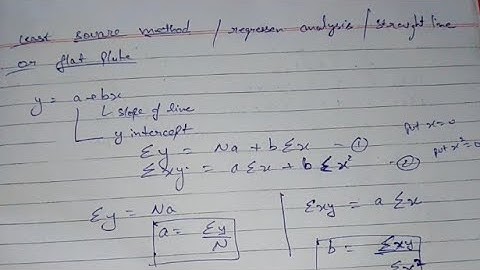 least square method / regression analysis / straight line
or flat
y = a + bx
slope of line
y intercept
Σy = Na + bΣx — ① put x=0
Σxy = aΣx + bΣx² — ② put x²=0
Σy = Na
Σxy = a Σx
a = Σy/N
b = Σxy/Σx²